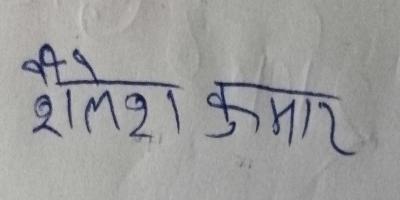 शैलेश कुमार